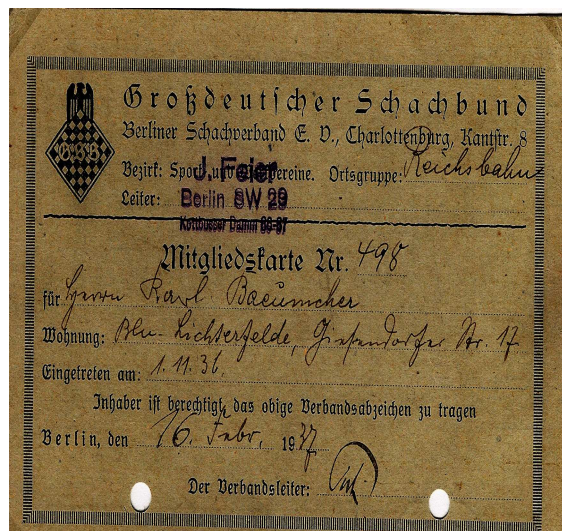 Großdeutscher Schachbund
Berliner Schachverband E. V., Charlottenburg, Kantstr. 8
G.S.B
Bezirk: Sport und Vereine. Ortsgruppe: Reichsbahn
J. Feier
Leiter: Berlin SW 29
Kottbusser Damm
Mitgliedskarte Nr. 498
für Herrn Karl Baeumcher
Wohnung: Bln-Lichterfelde, Giesendorfer Str. 17
Eingetreten am: 1.11.36.
Inhaber ist berechtigt, das obige Verbandsabzeichen zu tragen
Berlin, den 16. Febr. 1937
Der Verbandsleiter: